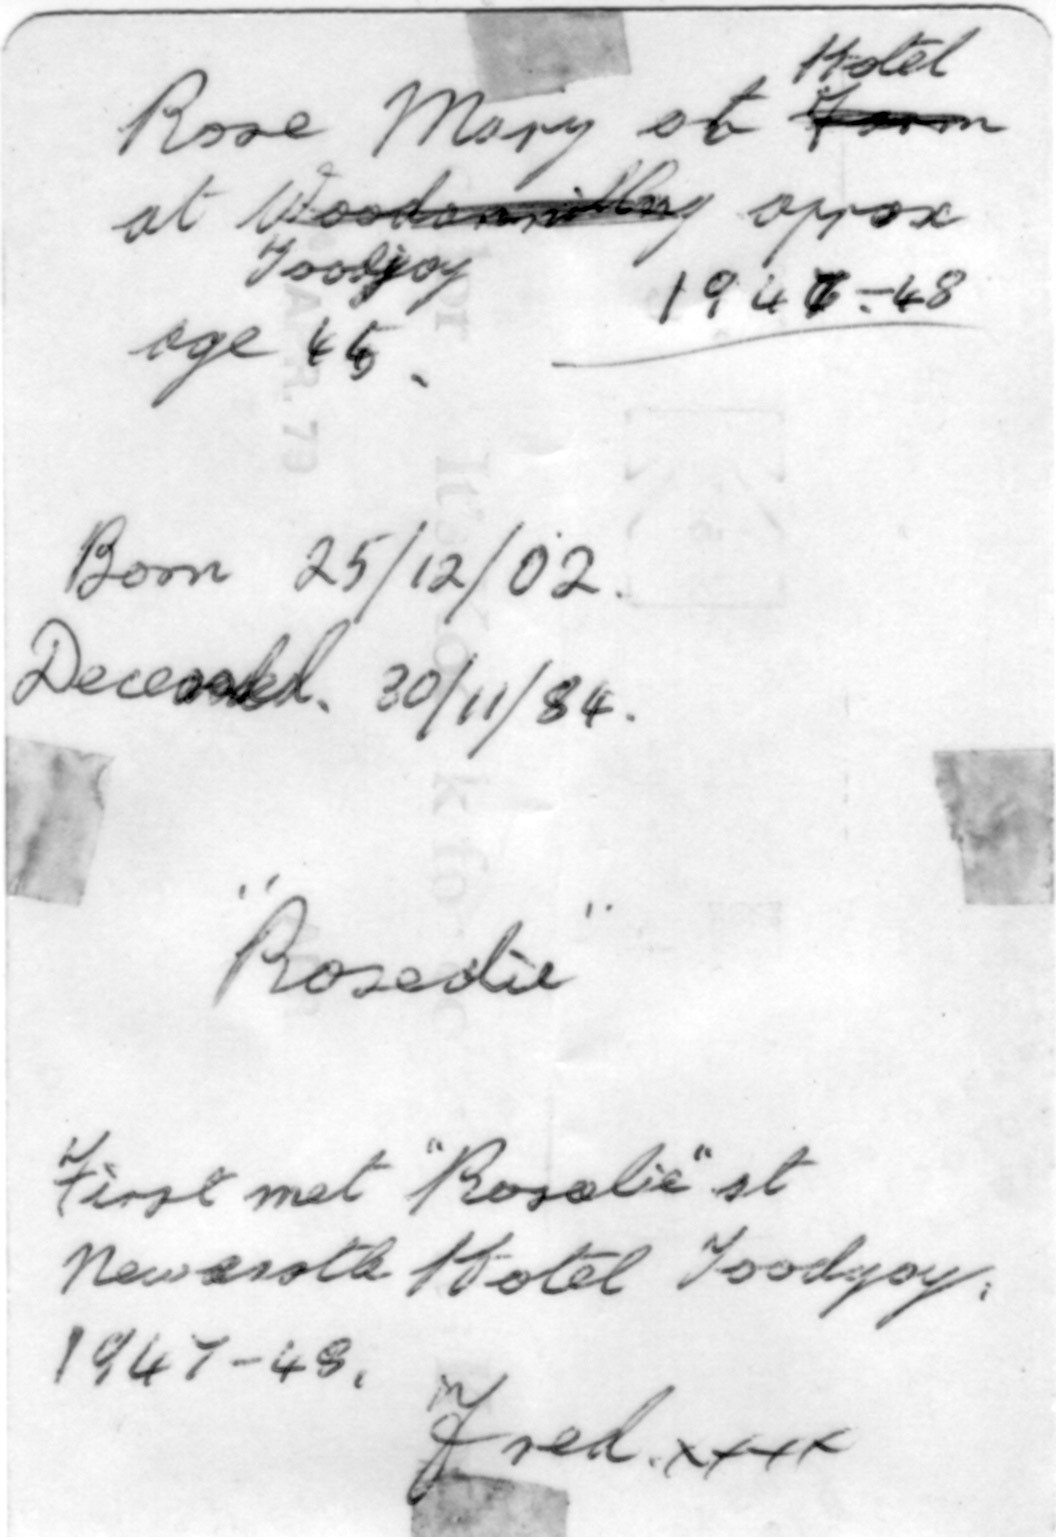 Hotel
Rose Mary at Farm
at Woodanilling aprox
Toodjoy
1947-48
age 45.
Born 25/12/02.
Deceased. 30/11/84.
"Rosalie"
First met "Rosalie" at
Newcastle Hotel Toodyay.
1947-48.
Fred. xxxx